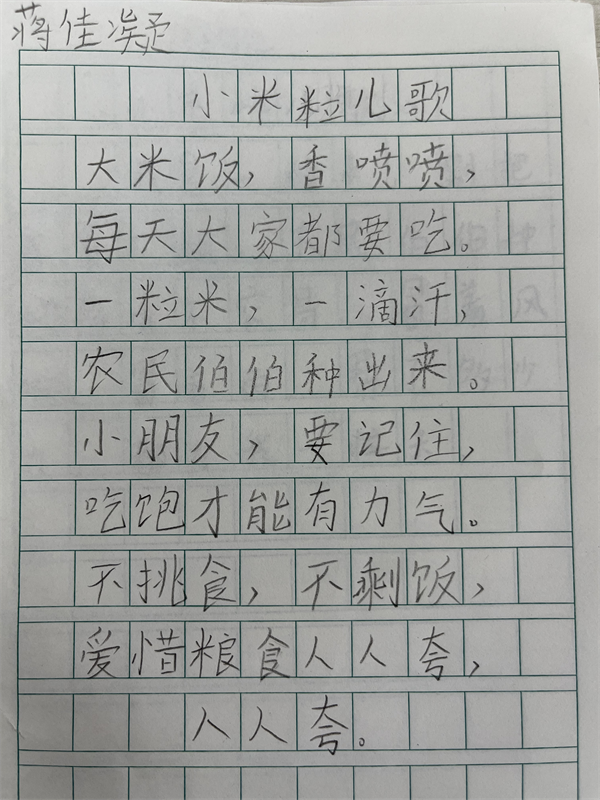 蒋佳凝
小米粒儿歌
大米饭，香喷喷，
每天大家都要吃。
一粒米，一滴汗，
农民伯伯种出来。
小朋友，要记住，
吃饱才能有力气。
不挑食，不剩饭，
爱惜粮食人人夸，
人人夸。